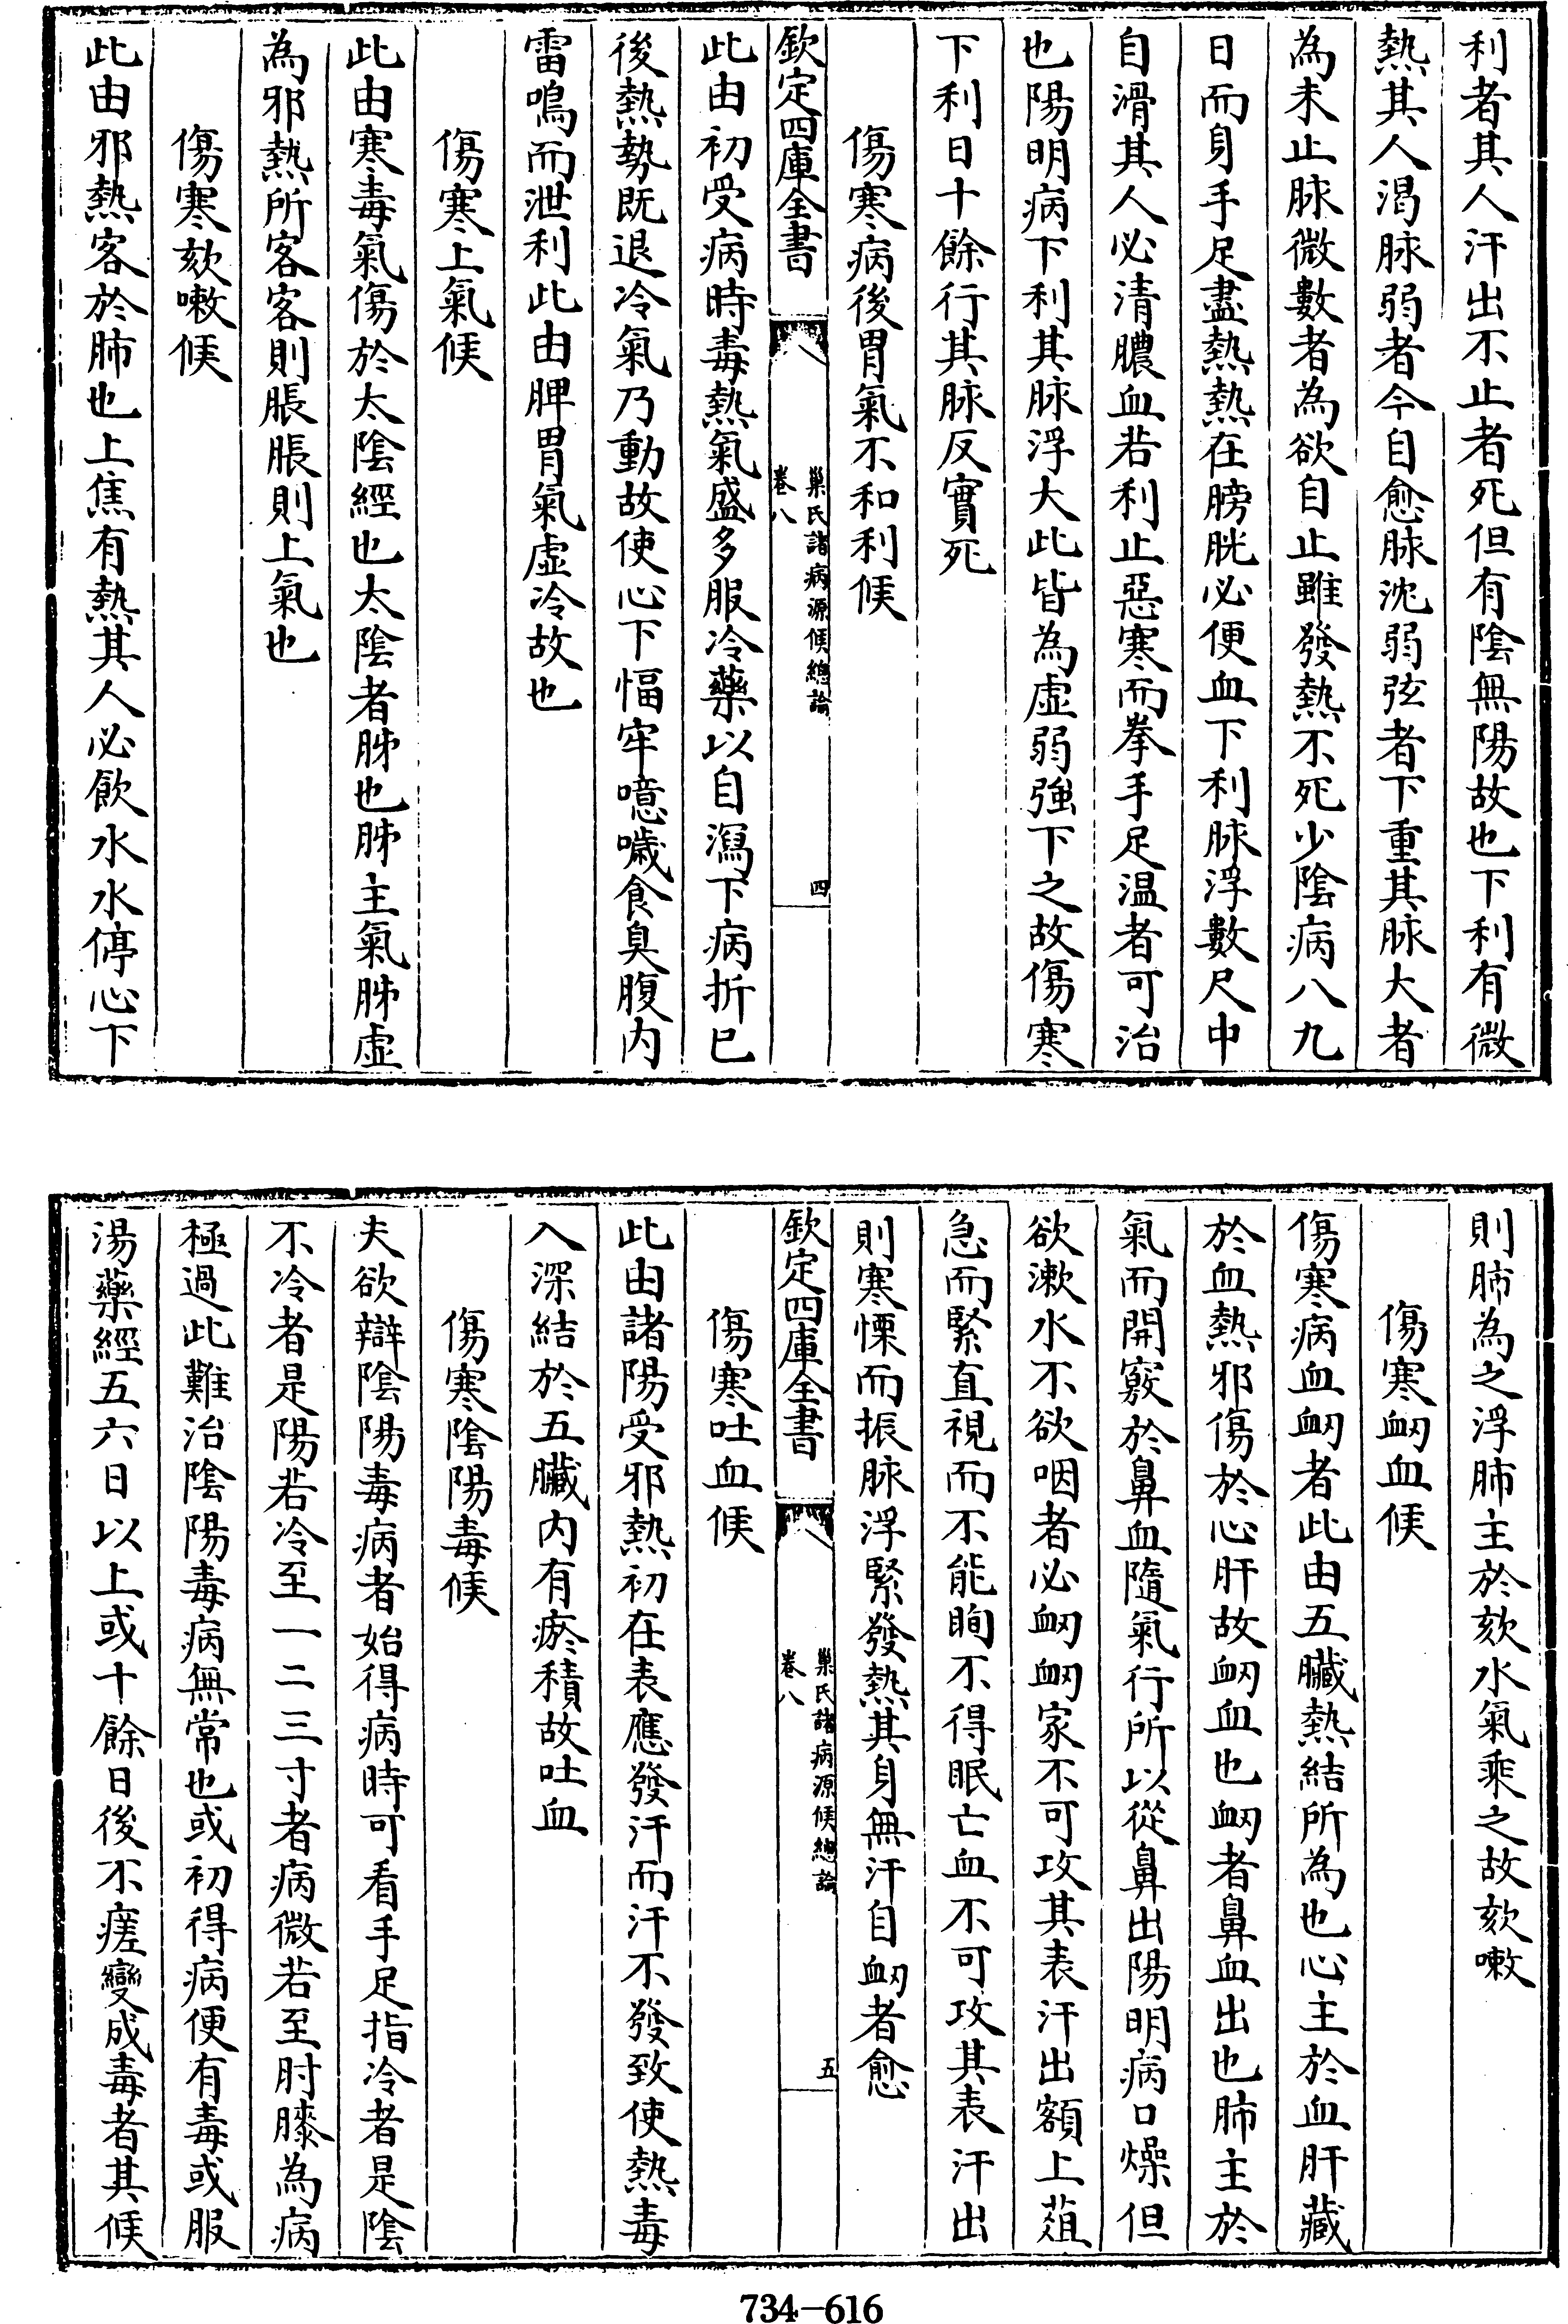 利者其人汗出不止者死但有陰無陽故也下利有微
熱其人渴脉弱者今自愈脉沈弱弦者下重其脉大者
為未止脉微數者為欲自止雖發熱不死少陰病八九
日而身手足盡熱熱在膀胱必便血下利脉浮數尺中
自滑其人必清膿血若利止惡寒而拳手足温者可治
也陽明病下利其脉浮大此皆為虛弱強下之故傷寒
下利日十餘行其脉反實死
傷寒病後胃氣不和利候
欽定四庫全書
巢氏諸病源候總論
卷八
四
此由初受病時毒熱氣盛多服冷藥以自瀉下病折已
後熱勢既退冷氣乃動故使心下愊牢噫噦食臭腹内
雷鳴而泄利此由脾胃氣虛冷故也
傷寒上氣候
此由寒毒氣傷於太陰經也太陰者肺也肺主氣肺虛
為邪熱所客客則脹脹則上氣也
傷寒欬嗽候
此由邪熱客於肺也上焦有熱其人必飲水水停心下
則肺為之浮肺主於欬水氣乘之故欬嗽
傷寒衂血候
傷寒病血衂者此由五臟熱結所為也心主於血肝藏
於血熱邪傷於心肝故衂血也衂者鼻血出也肺主於
氣而開竅於鼻血隨氣行所以從鼻出陽明病口燥但
欲漱水不欲咽者必衂衂家不可攻其表汗出額上葅
急而緊直視而不能眴不得眠亡血不可攻其表汗出
則寒慄而振脉浮緊發熱其身無汗自衂者愈
欽定四庫全書
巢氏諸病源候總論
卷八
五
傷寒吐血候
此由諸陽受邪熱初在表應發汗而汗不發致使熱毒
入深結於五臟内有瘀積故吐血
傷寒陰陽毒候
夫欲辯陰陽毒病者始得病時可看手足指冷者是陰
不冷者是陽若冷至一二三寸者病微若至肘膝為病
極過此難治陰陽毒病無常也或初得病便有毒或服
湯藥經五六日以上或十餘日後不瘥變成毒者其候
734-616